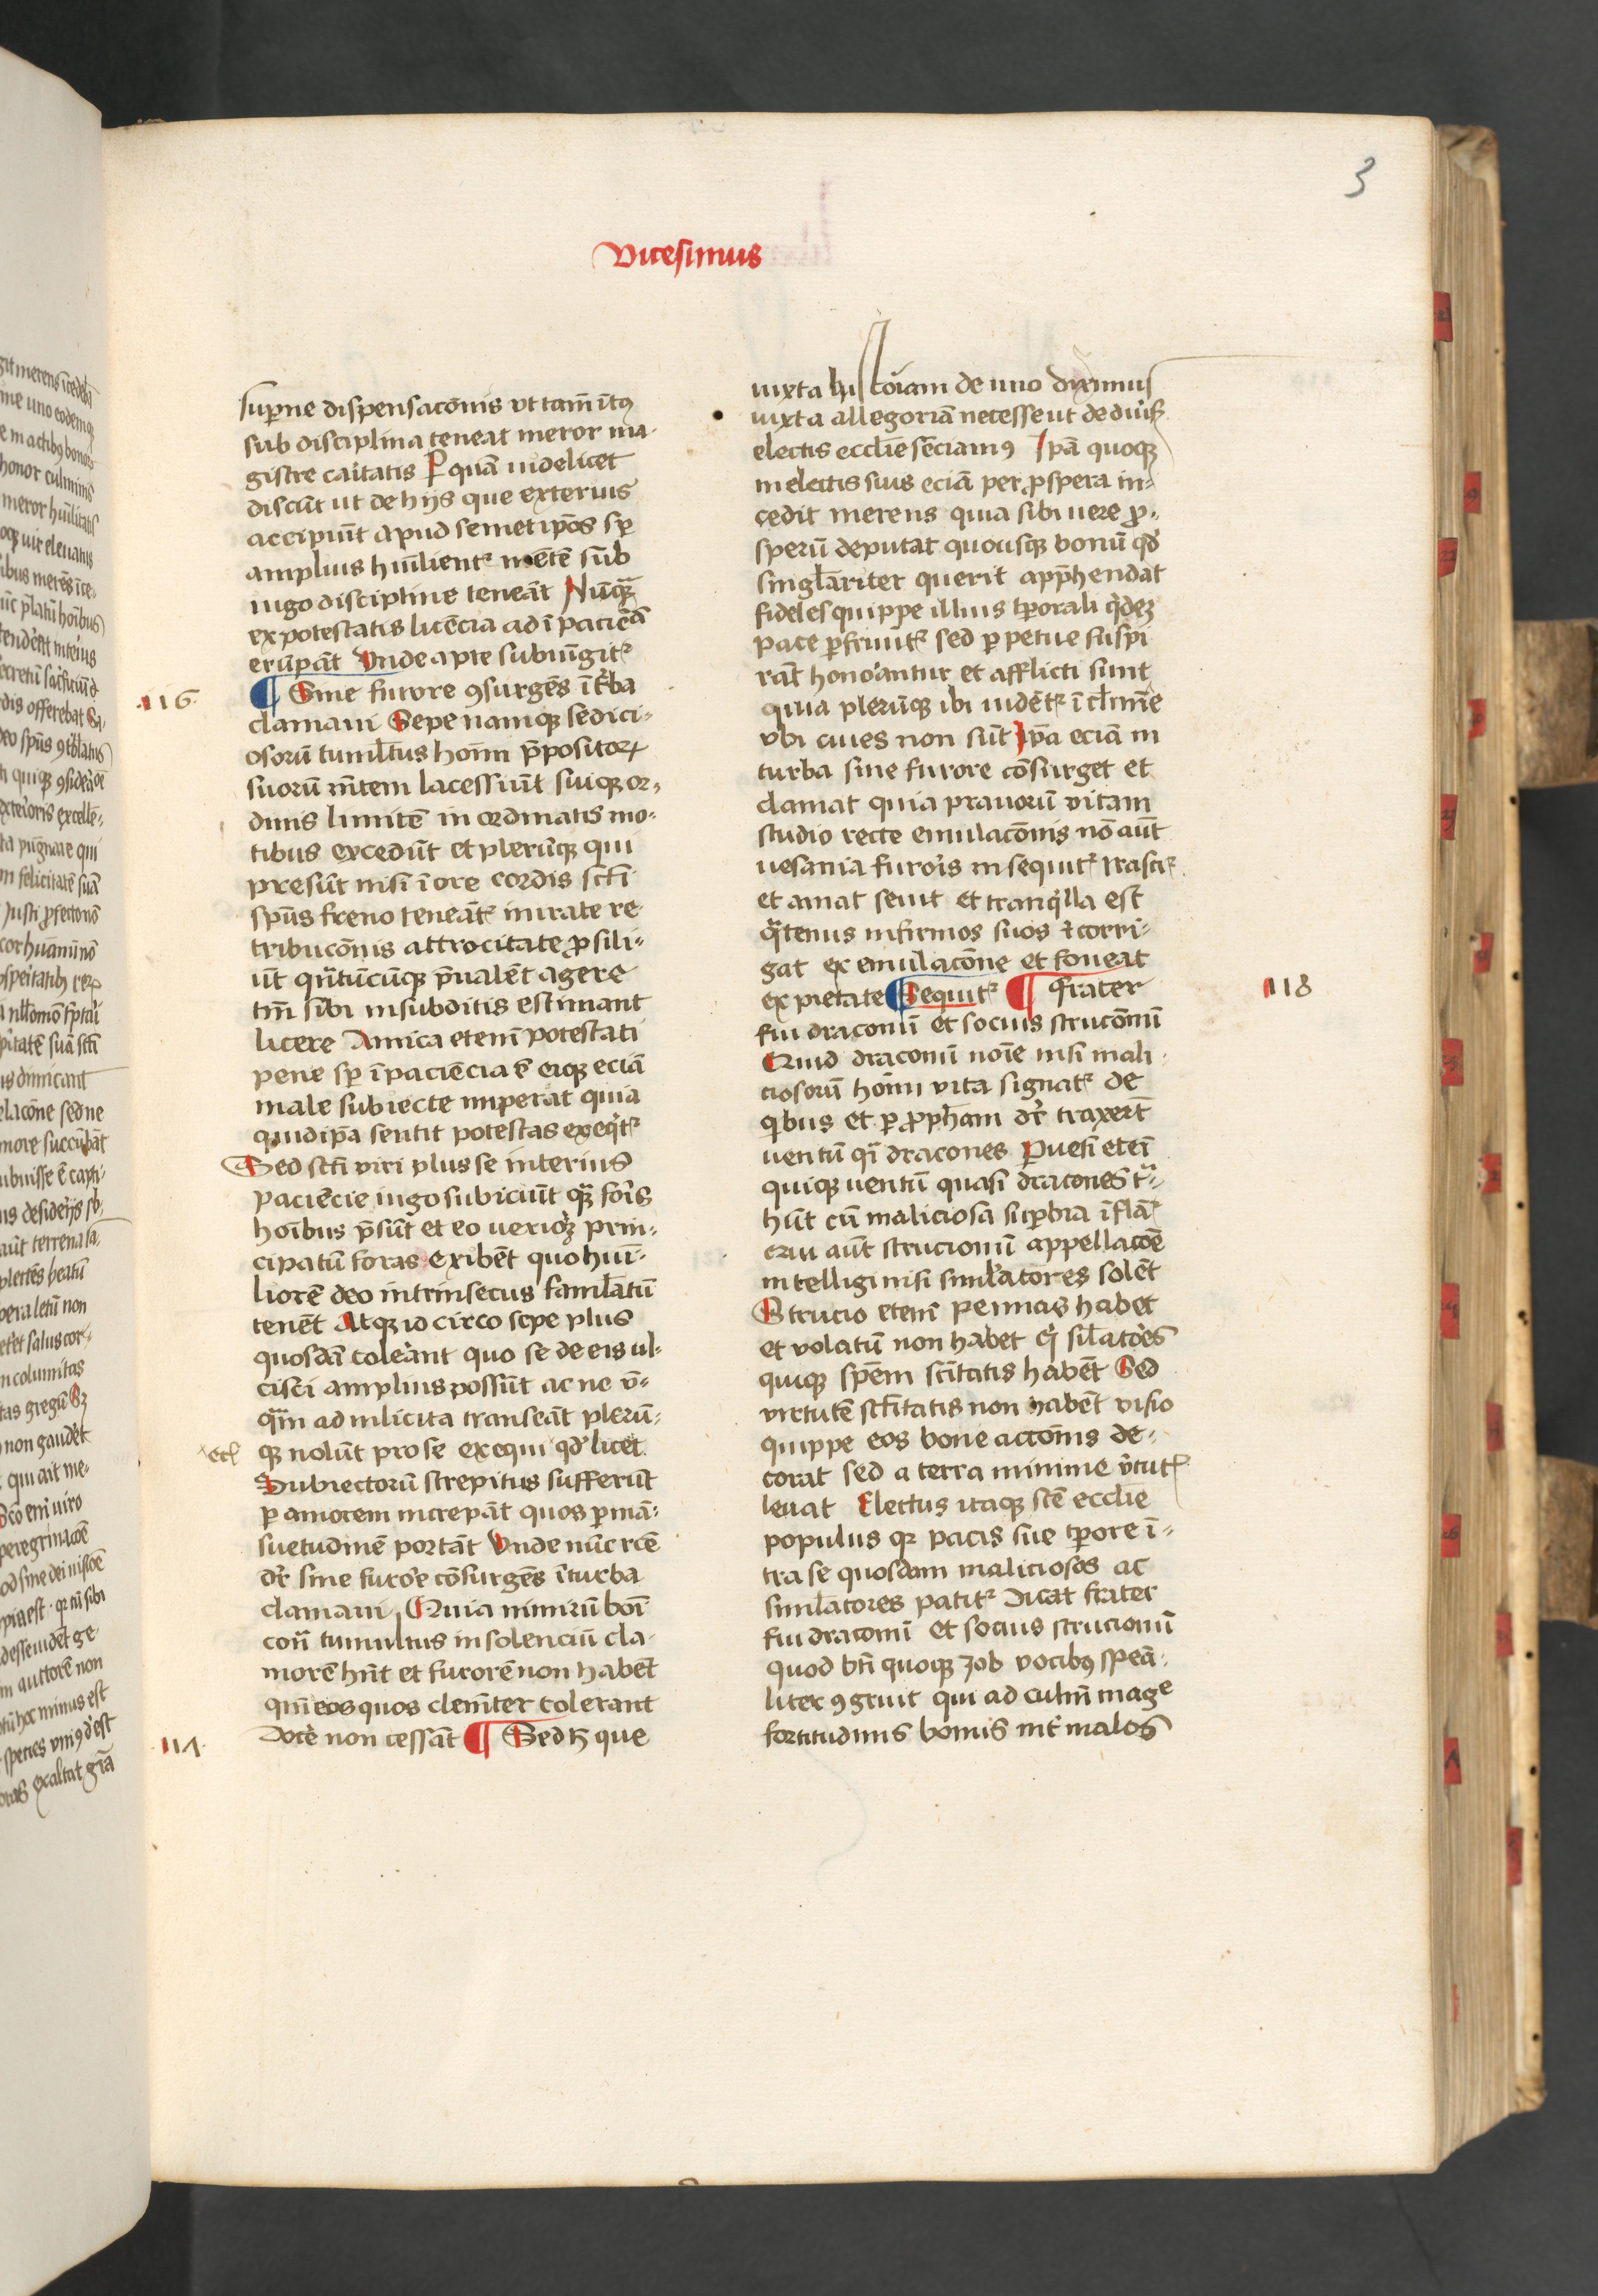 3
Vicesimus
superne dispensacōnis vt tam̄ ītꝰ
sub disciplina teneat meror ma-
gistre caitatis Per quā uidelicet
discūt ut de hijs que exterius
accipiūt apud semetip̄os sp̄
amplius hūilient᷑ mētē sub
iugo discipline teneāt Nūq̄
ex potestatis licēcia ad īpaciēciā
erūpāt Vnde apte subiūgit᷑
116
¶ Sine furore ꝯsurgēs ī t᷑ba
clamaui Sepe namqꝫ sedici-
osorū tumltus hoīm p̄positoꝝ
suorū m̄tem lacessiūt suiqꝫ or-
dinis limitē inordinatis mo-
tibus excedūt et plerūqꝫ qui
presūt nisi ī ore cordis sc̄ti
spūs freno teneāt᷑ in irate re
tribucōnis attrocitate ꝓsili-
ūt q̄ntūcūqꝫ p̄ualēt agere
tm̄ sibi in subditis estimant
licere Amica etenī potestati
pene sp̄ īpaciēcia ē eiqꝫ eciā
male subiecte imperat quia
quid ip̄a sentit potestas exeq̄t᷑
Sed sc̄ti viri plus se interius
paciēcie iugo subiciūt qꝫ foris
hoībus p̄sūt et eo ueriorꝫ prin-
cipatū foras exibēt quo hūi-
liorē deo intrinsecus famlatū
tenēt Atqꝫ idcirco sepe plus
quosdā tolerant quo se de eis ul-
cisci amplius possūt ac ne ū-
q̄m ad inlicita transeāt plerū-
qꝫ nolūt pro se exequi qd̓ licet
Subiectorū strepitus sufferūt
ꝑ amorem increpāt quos ꝑ mā-
suetudinē portāt Vnde nūc rc̄e
dr̄ sine furore cōsurgēs ī turba
clamaui Quia nimirū boī
cōn̄ tumultus insolenciū cla-
morē hn̄t et furorē non habēt
qm̄ eos quos clem̄ter tolerant
docē non cessāt ¶ Sed h̄ que
117
iuxta histoiam de uno diximus
iuxta allegoriā necesse ut de diu̓sꝭ
electis ecclīe sēciamꝰ Ip̄a quoqꝫ
in electis suis eciā per ꝓspera in-
cedit merens quia sibi uere ꝓ-
sperū deputat quousqꝫ bonū qd̓
singlariter querit app̄hendat
fideles quippe illius tꝑorali q̄dez
pace ꝑfruūt᷑ sed ꝑpetue suspi
rāt honorantur et afflicti sunt
quia plerūqꝫ ibi uidēt᷑ ī clm̄ie
vbi ciues non sūt Ip̄a eciā in
turba sine furore cōsurget et
clamat quia prauorū vitam
studio recte emulacōnis nō aūt
uesania furoris insequit᷑ Irascit᷑
et amat seuit et tranq̓lla est
q̄tenus infirmos suos ⁊ corri-
gat ex emulacōne et foueat
ex pietate ¶ Sequit᷑ ¶ Frater
118
fui draconū et socius strucōnū
Quid draconū noīe nisi mali
ciosorū hoīm vita signat᷑ de
qͥbus et ꝑ ꝓph̄am dr̄ traxert̄
uentū qī dracones Puersi etenī
quiqꝫ uentū quasi dracones tͣ-
hūt cū maliciosa suꝑbia īflāt᷑
aūt strucionū appellacōe
intelligi nisi simlatores solēt
Strucio etenī pennas habet
et volatū non habet qͥ silatores
quiqꝫ spēm sc̄itatis habēt Sed
virtutē sc̄titatis non habēt visio
quippe eos bone acconis de-
corat sed a terra minime v̓tutꝭ
leuat Electus itaqꝫ scē ecclīe
populus qꝛ pacis sue tꝑore ī-
tra se quosdam maliciosos ac
simlatores patit᷑ Dicat frater
fui draconū et socius strucionū
quod btī quoqꝫ Job vocibꝰ speā-
liter ꝯgruit qui ad culm̄ mage
fortitudinis bonus int̓ malos